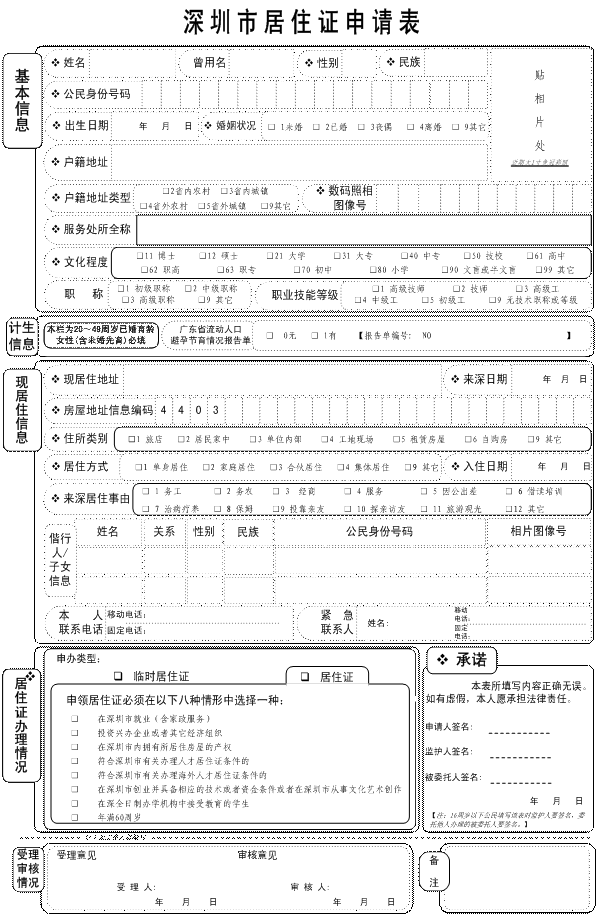 深圳市居住证申请表
基本信息
❖ 姓名 曾用名 ❖ 性别 ❖ 民族
贴相片处
❖ 公民身份号码
❖ 出生日期 年 月 日 ❖ 婚姻状况 □ 1未婚 □ 2已婚 □ 3丧偶 □ 4离婚 □ 9其它
❖ 户籍地址
❖ 户籍地址类型 □2省内农村 □3省内城镇
□4省外农村 □5省外城镇 □9其它
❖ 数码照相
图像号
❖ 服务处所全称
❖ 文化程度 □11 博士 □12 硕士 □21 大学 □31 大专 □40 中专 □50 技校 □61 高中
□62 职高 □63 职专 □70 初中 □80 小学 □90 文盲或半文盲 □99 其它
职 称 □1 初级职称 □2 中级职称
□3 高级职称 □9 其它
职业技能等级 □1 高级技师 □2 技师 □3 高级工
□4 中级工 □5 初级工 □9 无技术职称或等级
计生
信息
本栏为20～49周岁已婚育龄
女性(含未婚先育)必填
广东省流动人口
避孕节育情况报告单
□ 0无 □ 1有 【报告单编号: NO 】
现居住信息
❖ 现居住地址 ❖ 来深日期 年 月 日
❖ 房屋地址信息编码 4 4 0 3
❖ 住所类别 □1 旅店 □2 居民家中 □3 单位内部 □4 工地现场 □5 租赁房屋 □6 自购房 □9 其它
❖ 居住方式 □1 单身居住 □2 家庭居住 □3 合伙居住 □4 集体居住 □9 其它 ❖ 入住日期 年 月 日
❖ 来深居住事由 □ 1 务工 □ 2 务农 □ 3 经商 □ 4 服务 □ 5 因公出差 □ 6 借读培训
□ 7 治病疗养 □ 8 保姆 □ 9 投靠亲友 □ 10 探亲访友 □ 11 旅游观光 □12 其它
偕行
人/
子女
信息
姓名 关系 性别 民族 公民身份号码 相片图像号
本 人
联系电话
移动电话:
固定电话:
紧 急
联系人
姓名:
移动
电话:
固定
电话:
❖ 居住证办理情况
申办类型:
□ 临时居住证 □ 居住证
申领居住证必须在以下八种情形中选择一种:
□ 在深圳市就业（含家政服务）
□ 投资兴办企业或者其它经济组织
□ 在深圳市内拥有所居住房屋的产权
□ 符合深圳市有关办理人才居住证条件的
□ 符合深圳市有关办理海外人才居住证条件的
□ 在深圳市创业并具备相应的技术或者资金条件或者在深圳市从事文化艺术创作
□ 在深全日制办学机构中接受教育的学生
□ 年满60周岁
❖ 承诺
本表所填写内容正确无误。
如有虚假，本人愿承担法律责任。
申请人签名:
监护人签名:
被委托人签名:
年 月 日
【注: 16周岁以下公民填写该表时监护人要签名，委
托他人办理的被委托人要签名。】
受理
审核
情况
受理意见 审核意见
受 理 人: 审 核 人:
年 月 日 年 月 日
备
注